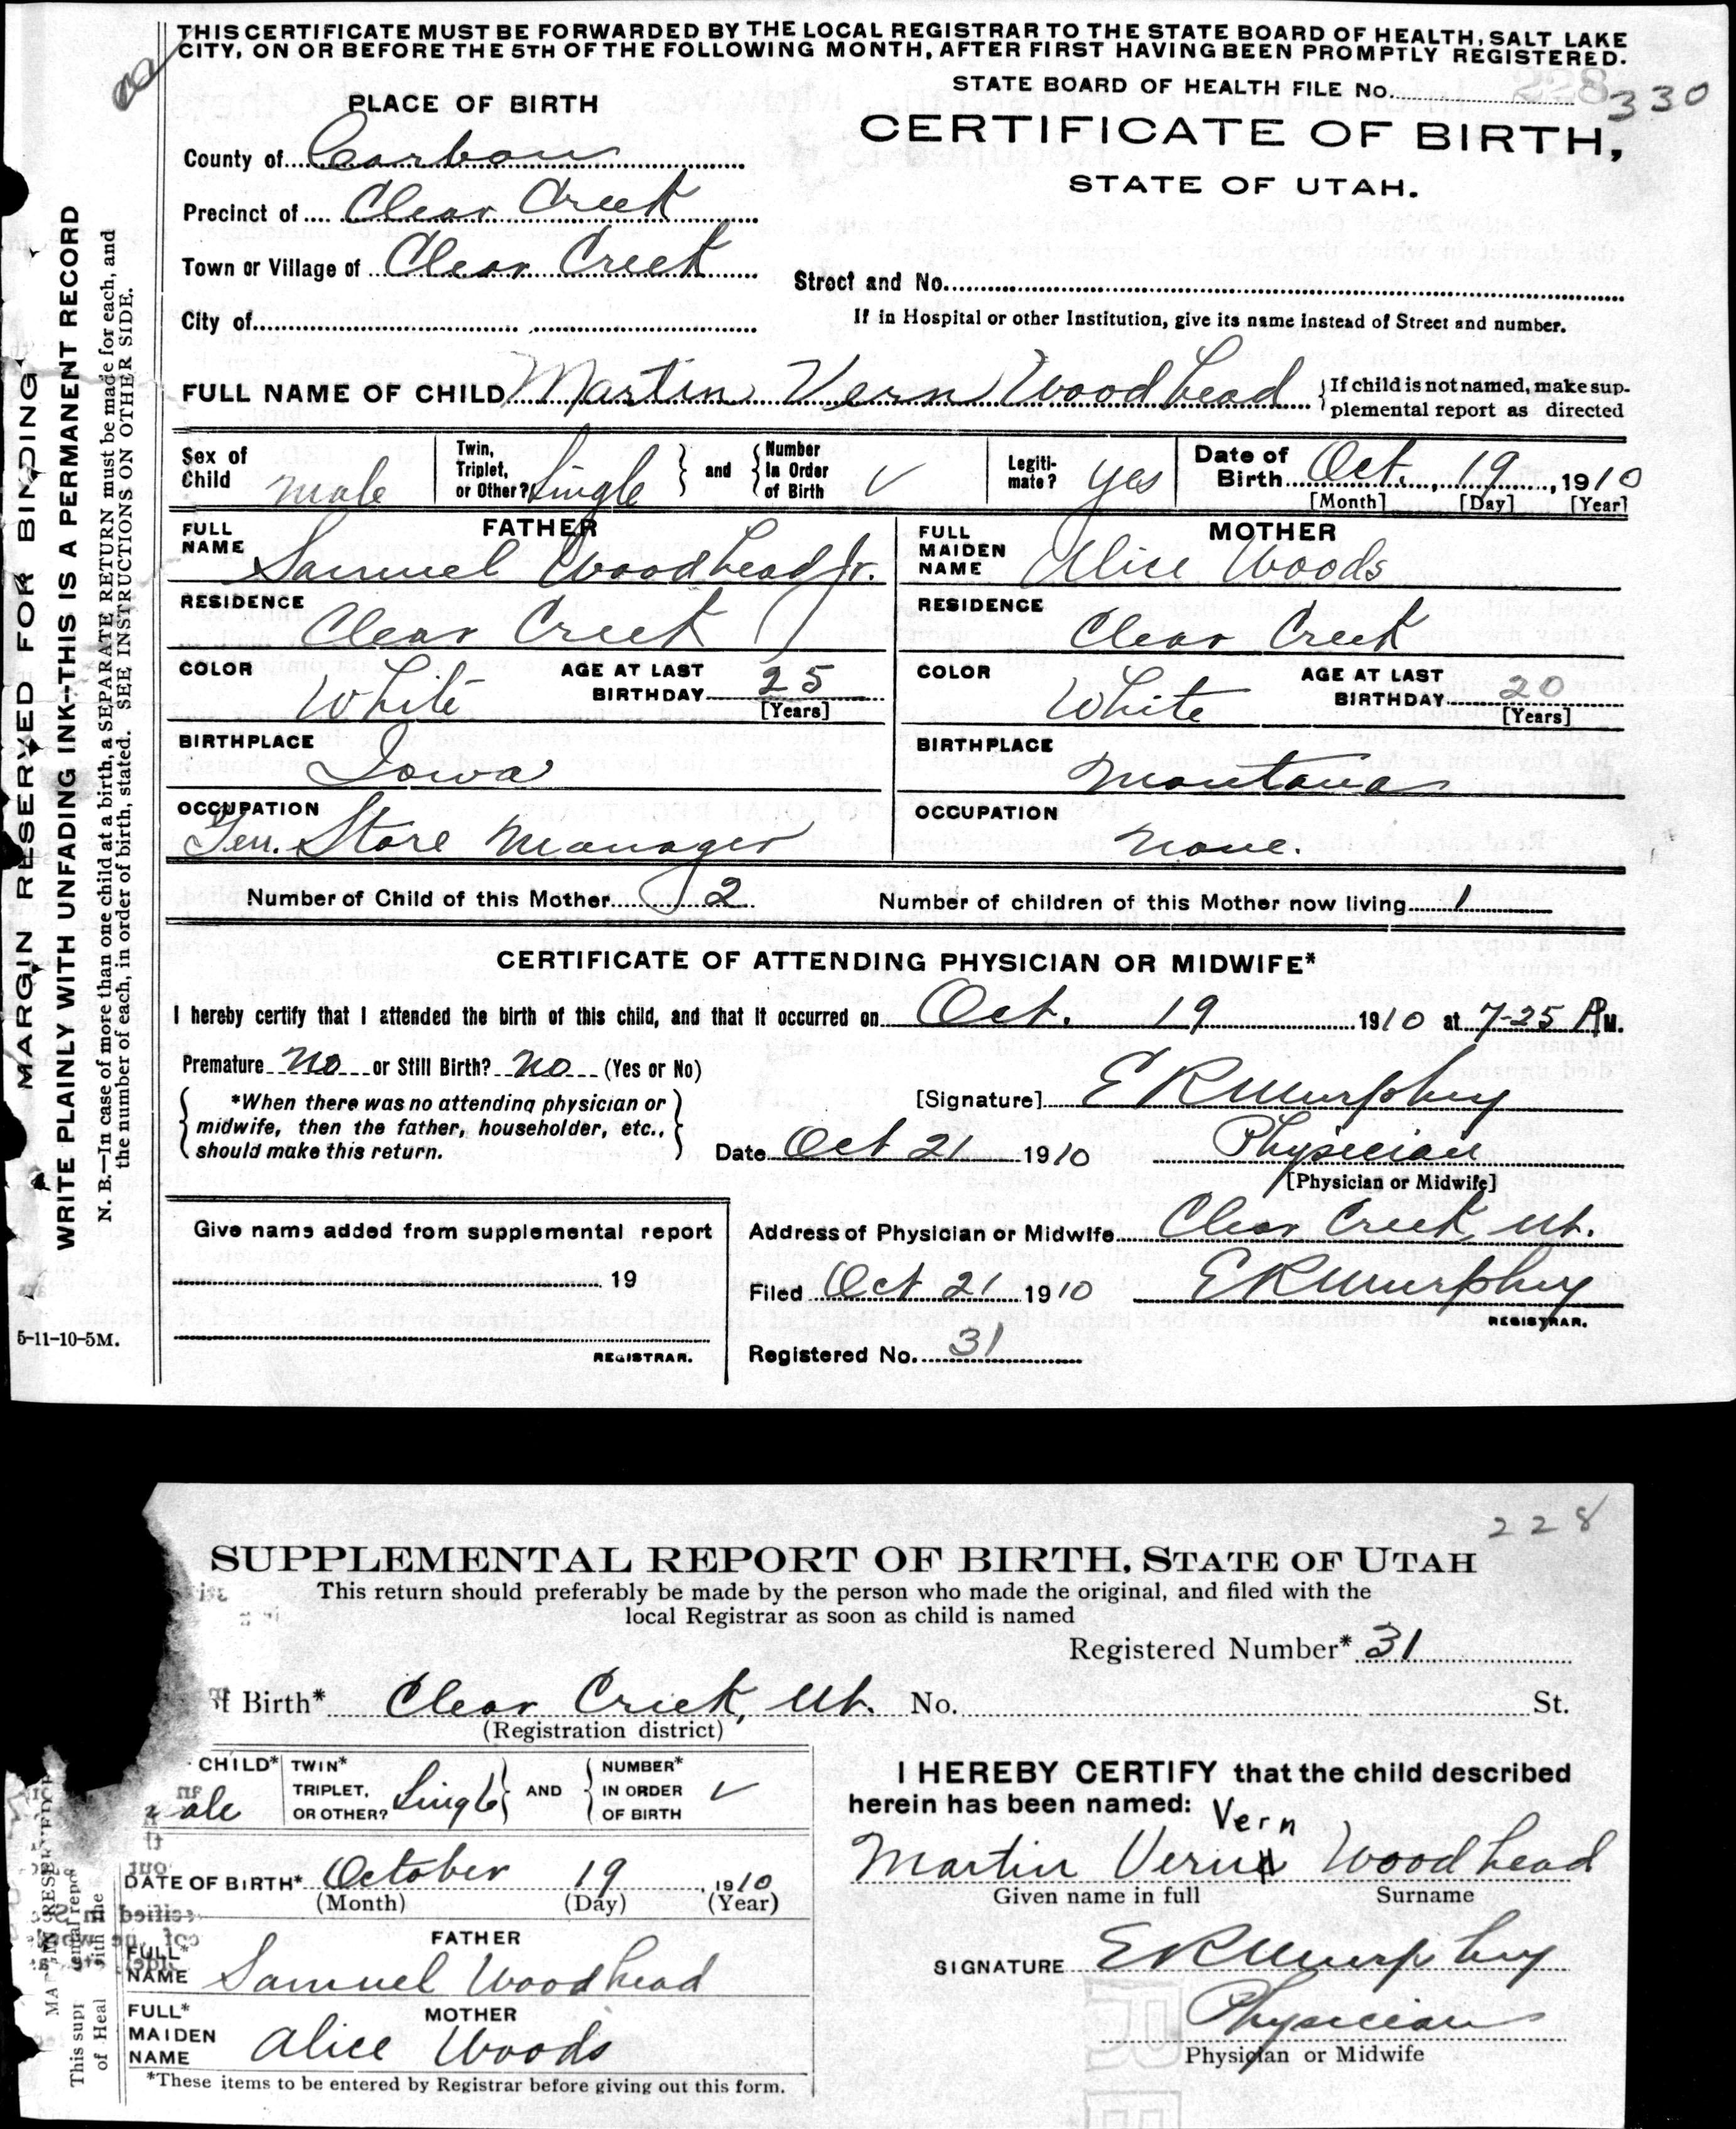 THIS CERTIFICATE MUST BE FORWARDED BY THE LOCAL REGISTRAR TO THE STATE BOARD OF HEALTH, SALT LAKE
CITY, ON OR BEFORE THE 5TH OF THE FOLLOWING MONTH, AFTER FIRST HAVING BEEN PROMPTLY REGISTERED.
STATE BOARD OF HEALTH FILE No. 228 330
PLACE OF BIRTH
CERTIFICATE OF BIRTH,
STATE OF UTAH.
County of Carbon
Precinct of Clear Creek
Town or Village of Clear Creek
Street and No.
City of
If in Hospital or other Institution, give its name instead of Street and number.
FULL NAME OF CHILD Martin Vern Woodhead
If child is not named, make sup-
plemental report as directed
Sex of Child male
Twin, Triplet, or Other? Single and Number in Order of Birth ✓
Legiti-mate? yes
Date of Birth Oct. 19, 1910
[Month] [Day] [Year]
FATHER
FULL NAME Samuel Woodhead Jr.
RESIDENCE Clear Creek
COLOR White AGE AT LAST BIRTHDAY 25
[Years]
BIRTHPLACE Iowa
OCCUPATION Gen. Store Manager
MOTHER
FULL MAIDEN NAME Alice Woods
RESIDENCE Clear Creek
COLOR White AGE AT LAST BIRTHDAY 20
[Years]
BIRTHPLACE Montana
OCCUPATION None.
Number of Child of this Mother 2
Number of children of this Mother now living 1
CERTIFICATE OF ATTENDING PHYSICIAN OR MIDWIFE*
I hereby certify that I attended the birth of this child, and that it occurred on Oct. 19 1910 at 7-25 P M.
Premature No or Still Birth? No (Yes or No)
*When there was no attending physician or
midwife, then the father, householder, etc.,
should make this return.
[Signature] E R Murphy
Date Oct 21 1910 Physician
[Physician or Midwife]
Give name added from supplemental report
19
REGISTRAR.
Address of Physician or Midwife Clear Creek, Ut.
Filed Oct 21 1910 E R Murphy
REGISTRAR.
Registered No. 31
MARGIN RESERVED FOR BINDING
WRITE PLAINLY WITH UNFADING INK--THIS IS A PERMANENT RECORD
N. B.—In case of more than one child at a birth, a SEPARATE RETURN must be made for each, and
the number of each, in order of birth, stated. SEE INSTRUCTIONS ON OTHER SIDE.
5-11-10-5M.
228
SUPPLEMENTAL REPORT OF BIRTH, STATE OF UTAH
This return should preferably be made by the person who made the original, and filed with the
local Registrar as soon as child is named
Registered Number* 31
Birth* Clear Creek, Ut. No. St.
(Registration district)
CHILD* ale
TWIN* TRIPLET, OR OTHER? Single AND NUMBER* IN ORDER OF BIRTH ✓
DATE OF BIRTH* October 19, 1910
(Month) (Day) (Year)
FATHER
FULL* NAME Samuel Woodhead
MOTHER
FULL* MAIDEN NAME Alice Woods
*These items to be entered by Registrar before giving out this form.
I HEREBY CERTIFY that the child described
herein has been named:
Vern
Martin Woodhead
Given name in full Surname
SIGNATURE E R Murphy
Physician
Physician or Midwife
This supp
of Heal